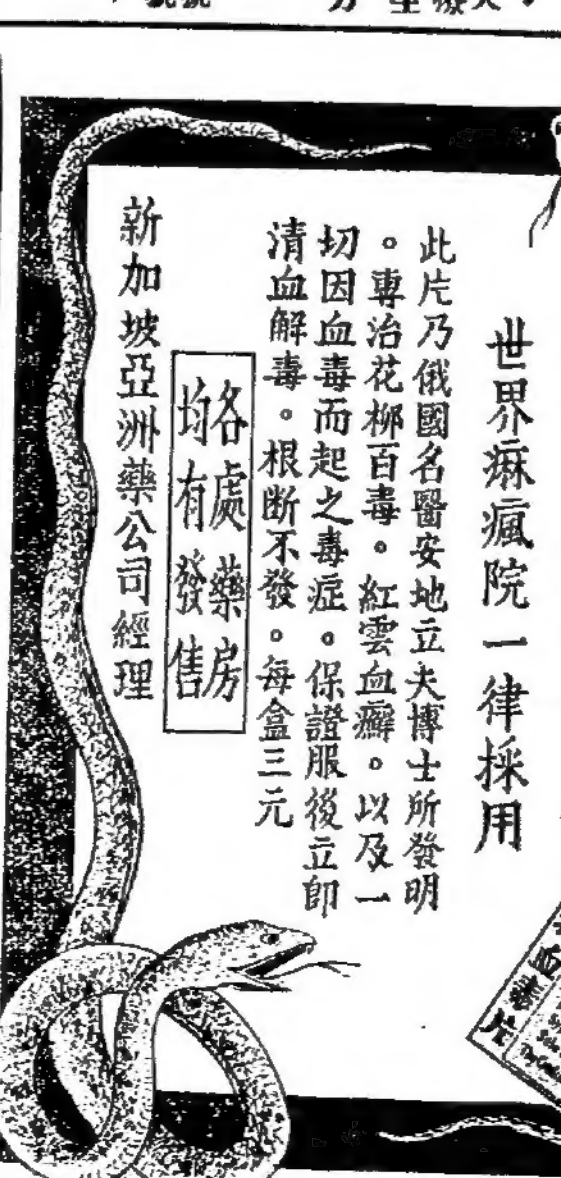 世界痳瘋院一律採用
此片乃俄國名醫安地立夫博士所發明
。專治花柳百毒。紅雲血癬。以及一
切因血毒而起之毒症。保證服後立即
清血解毒。根断不發。每盒三元
各處藥房
均有發售
新加坡亞洲藥公司經理